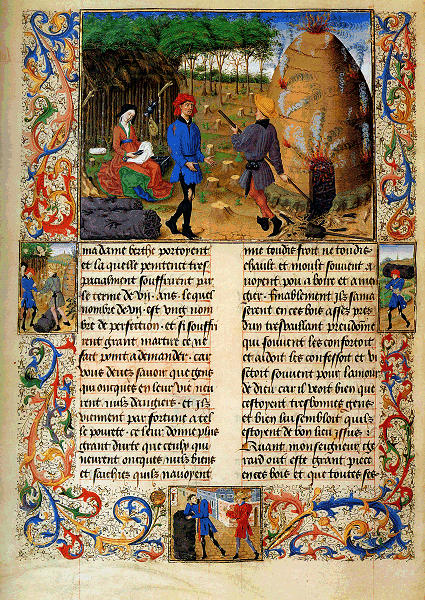 madame berthe portoyent
et la quelle penitence tres
pacialment souffrirent par
le terme de vii. ans. le quel
nombre de vii. est ung nom
bre de perfection. et si souffri
rent grant martire et ne
fait point a demander. car
vous devez savoir que gens
qui oncques en leur vie neu
rent nulz dangiers. et ilz
viennent par fortune a tel
le povrete ce leur donne plus
grant durte que ceulx qui
neurent oncques nulz biens
et sachies quilz navoyent
mie toudis froit ne toudis
chault et moult souvent a
voyent pou a boire et a men
gier. finablement ilz sama
serent en ces bois assez pres
dun trespaillant preudome
qui souvent les confortoit
et aidoit les confessoit et vi
setoit souvent pour lamour
de dieu car il veoit bien que
cestoyent tresbonnes gens
et bien lui sembloit quilz
estoyent de bon lieu issus
Quant monseigneur ge
raud out este grant piece
en ces bois et que toutes ses